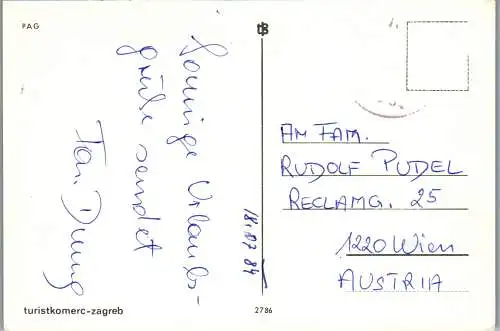 PAG
Sonnige Urlaubs-
grüße sendet
Fam.
18.07.84
AM FAM.
RUDOLF PUDEL
RECLAMG. 25
1220 Wien
AUSTRIA
turistkomerc-zagreb
2786